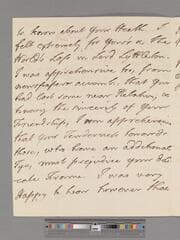 to know about your Health. I
felt extremely for yours & the
World's Loss in Lord Lyttelton.
I was apprehensive too, from
Newspaper accounts, that you
had lost some near Relation, &
knowing the sincerity of your
Friendships, I am apprehensive,
that your Tenderness towards
those, who have an additional
Tye, must prejudice your
Frame. I was very
Happy to hear however that